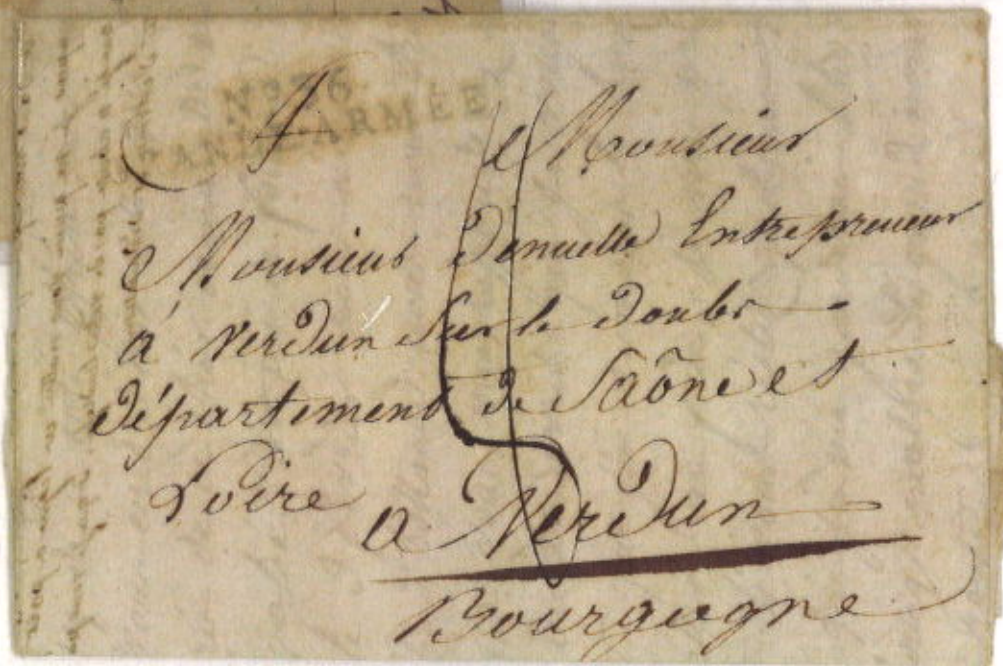 No 26
GRANDE-ARMÉE
A Monsieur
Monsieur Denuelle Entrepreneur
à Verdun Sur le doubs
département de Saône et
Loire
a Verdun
Bourgogne